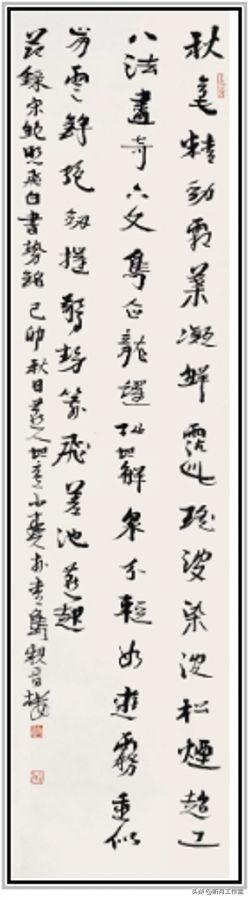 秋毫精勁霜素凝鮮霑此瑤波染彼松煙超工
八法盡奇六文鳥企龍躍珠解泉分輕如遊霧重似
崩雲鋒絕劍摧驚勢箭飛差池燕起
節錄宋鮑照飛白書勢銘 己卯秋日
头条@新月工作室